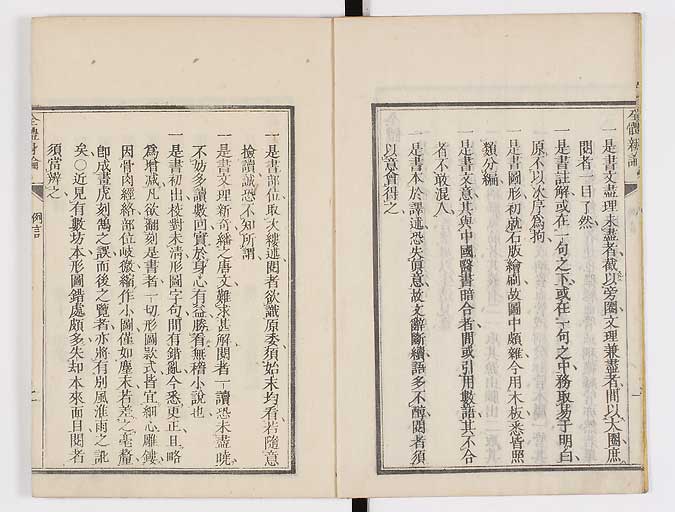 全體新論
一是書文盡理未盡者截以旁圈文理兼盡者間以大圈庶
閱者一目了然
一是書註解或在一句之下或在一句之中務取易于明白
原不以次序爲拘
一是書圖形初就石版繪刷故圖中頗雜今用木板悉皆照
類分編
一是書文意其與中國醫書暗合者間或引用數語其不合
者不敢混入
一是書本於譯述恐失眞意故文辭斷續語多不醇閱者須
以意會得之
一
全體新論
例言
一是書部位取大縷述閱者欲識原委須始末均看若隨意
撿讀誠恐不知所謂
一是書文理新奇繙之唐文難求甚解閱者一讀恐未盡曉
不妨多讀數回實於身心有益勝看無稽小說也
一是書初出校對未清形圖字句間有錯亂今悉更正且略
爲增减凡欲翻刻是書者一切形圖款式皆宜細心雕鏤
因骨肉經絡部位岐微縮作小圖僅如塵末若差之毫釐
卽成畫虎刻鵠之誤而後之覽者亦將有別風淮雨之訛
矣○近見有數坊本形圖錯處頗多失却本來面目閱者
須當辨之
二